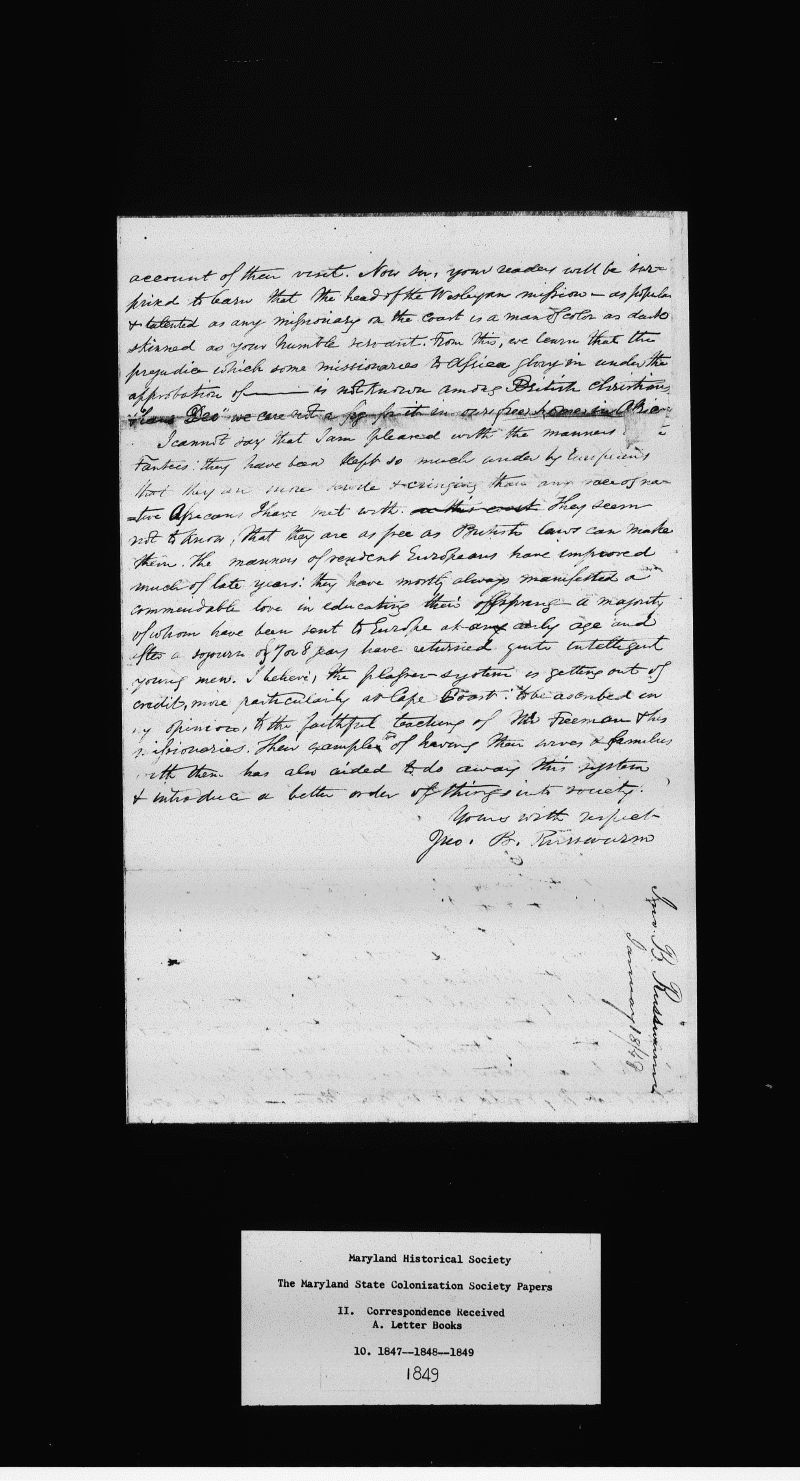 account of their visit. Now sir, your readers will be sur-
prised to learn that the head of the Wesleyan mission - as popular
& talented as any missionary on the coast is a man of color as dark
skinned as your humble servant. From this, we learn that the
prejudice which some missionaries to Africa glory in under the
approbation of ——— is not known among British Christians
Deo" we care not a fig for it in our free home in Africa
I cannot say that I am pleased with the manners
Fantees: they have been kept so much under by Europeans
that they are more servile & cringing than any race of na-
-tive Africans I have met with. on this coast They seem
not to know, that they are as free as British laws can make
them. The manners of resident Europeans have improved
much of late years: they have mostly always manifested a
commendable love in educating their offspring - a majority
of whom have been sent to Europe at an early age and
after a sojourn of 7 or 8 years have returned quite intelligent
young men. I believe, the system is getting out of
credit, more particularly at Cape Coast: to be ascribed in
my opinion, to the faithful teaching of Mr Freeman & his
missionaries. Their example too of having their wives & families
with them has also aided to do away this system
& introduce a better order of things into society.
Yours with respect
Jno. B. Russwurm
Jno. B. Russwurm
January 1848
Maryland Historical Society
The Maryland State Colonization Society Papers
II. Correspondence Received
A. Letter Books
10. 1847--1848--1849
1849